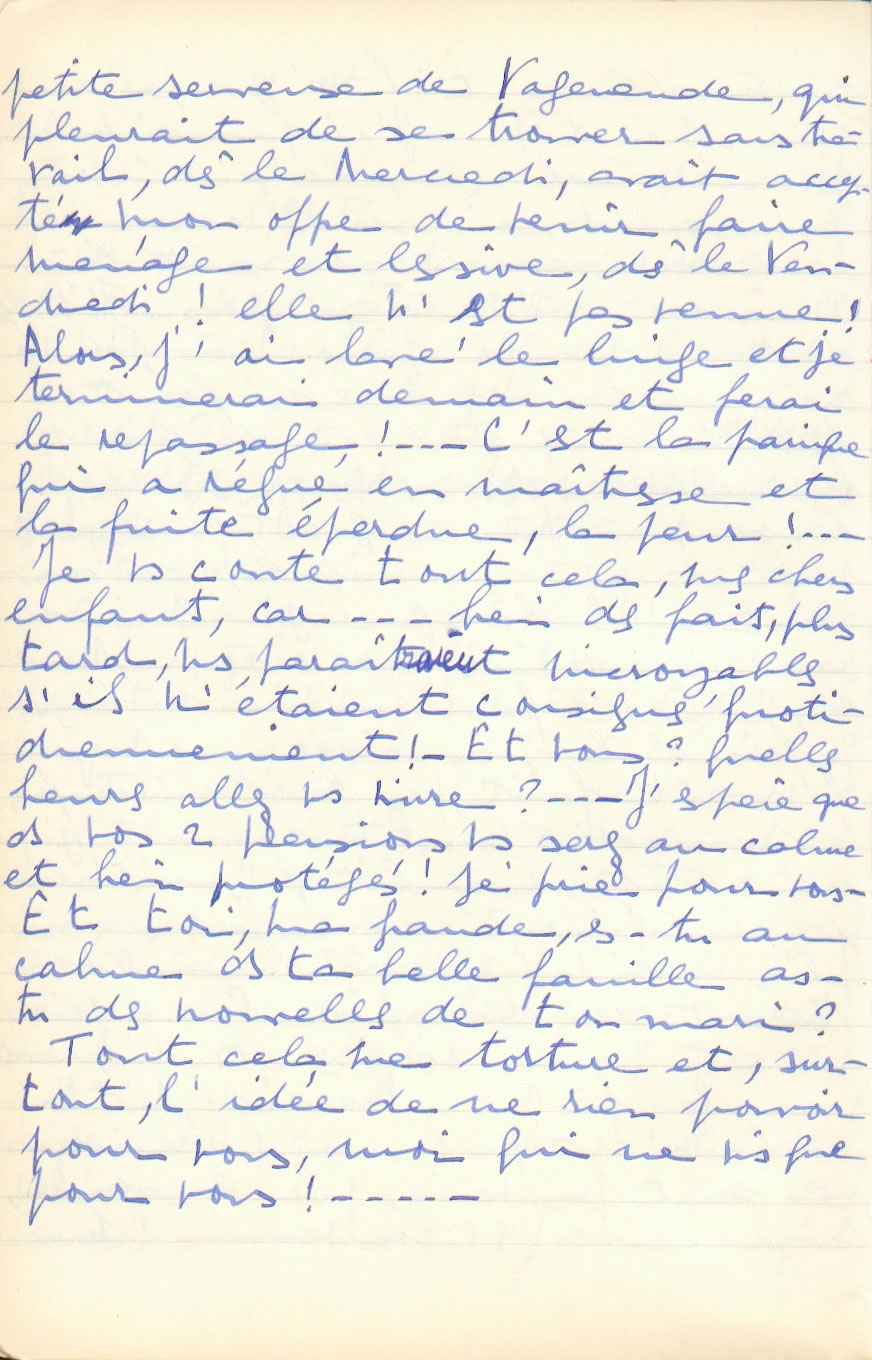 petite serveuse de Vagenende, qui
pleurait de se trouver sans tra-
vail, dès le Mercredi, avait accep-
té mon offre de venir faire
ménage et lessive, dès le Ven-
dredi ! elle n'est pas venue !
Alors, j'ai lavé le linge et je
terminerai demain et ferai
le repassage, ! --- C'est la panique
qui a régné en maîtresse et
la fuite éperdue, la peur ! ---
Je vs conte tout cela, mes chers
enfants, car --- bien des faits, plus
tard, vs paraîtraient incroyables
s'ils n'étaient consignés quoti-
diennement ! - Et vous ? quelles
heures allez vs vivre ? --- J'espère que
ds vos 2 pensions vs serez au calme
et bien protégés ! Je prie pour vous -
Et toi, ma grande, es-tu au
calme ds ta belle famille as-
tu des nouvelles de ton mari ?
Tout cela me torture et, sur-
tout, l'idée de ne rien pouvoir
pour vous, moi qui ne vis que
pour vous ! ------